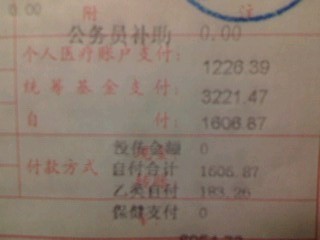 0.00 附 注
公务员补助 0.00
个人医疗账户支付: 1226.39
统筹基金支付: 3221.47
自 付: 1606.87
金额 0
付款方式 自付合计 1606.87
乙类自付 183.26
保健支付 0